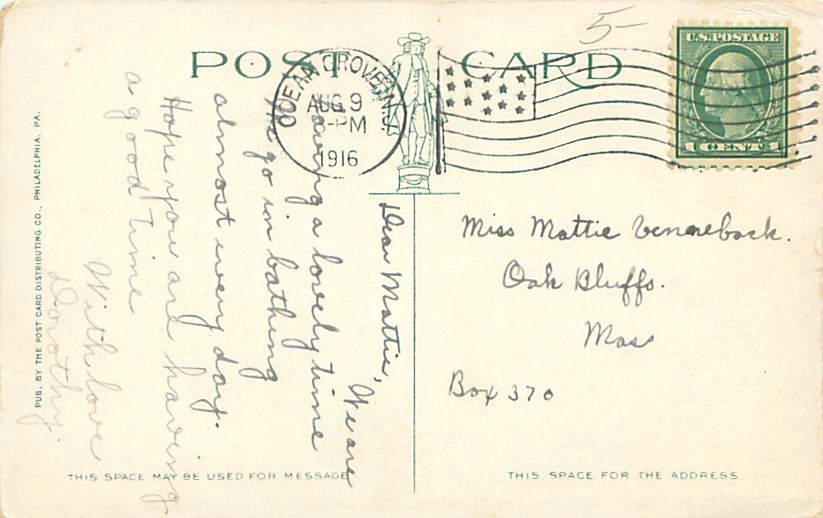 5-
POST CARD
U.S. POSTAGE
1 CENT 1
OCEAN GROVE, N.J.
AUG 9
3-PM
1916
Dear Mattie,
We are
having a lovely time
We go in bathing
almost every day.
Hope you are having
a good time
With love
Dorothy.
Miss Mattie
Oak Bluffs.
Mass
Box 370
PUB. BY THE POST CARD DISTRIBUTING CO., PHILADELPHIA, PA.
THIS SPACE MAY BE USED FOR MESSAGE
THIS SPACE FOR THE ADDRESS